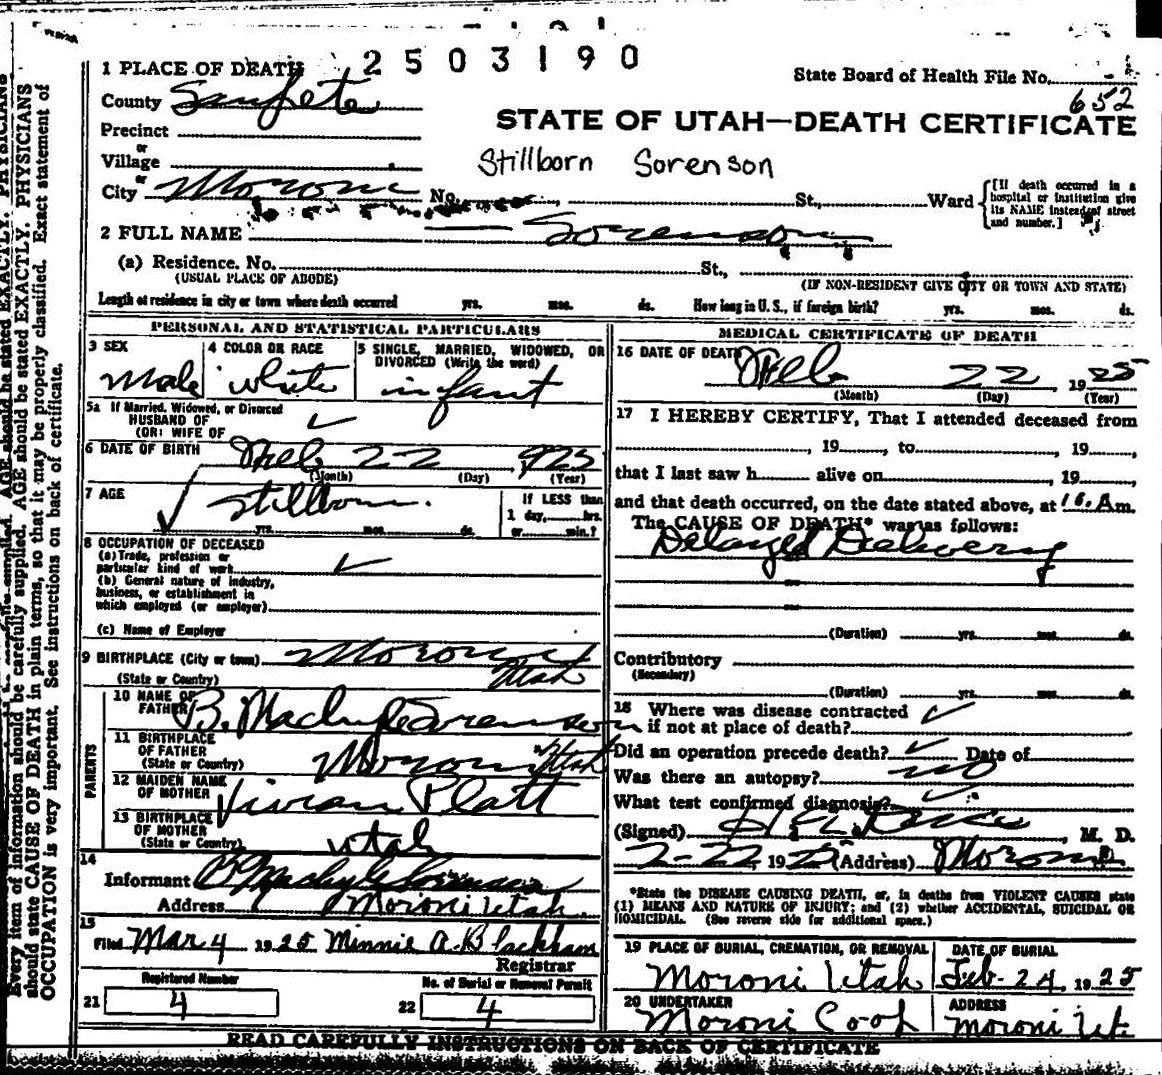 2503190
1 PLACE OF DEATH
State Board of Health File No.
652
County Sanpete
STATE OF UTAH—DEATH CERTIFICATE
Precinct
or
Village
Stillborn Sorenson
or
City Moroni No. St., Ward
[If death occurred in a hospital or institution give its NAME instead of street and number.]
2 FULL NAME Sorenson
(a) Residence. No. St.,
(USUAL PLACE OF ABODE) (IF NON-RESIDENT GIVE CITY OR TOWN AND STATE)
Length of residence in city or town where death occurred yrs. mos. ds. How long in U. S., if foreign birth? yrs. mos. ds.
PERSONAL AND STATISTICAL PARTICULARS
3 SEX
Male
4 COLOR OR RACE
white
5 SINGLE, MARRIED, WIDOWED, OR
DIVORCED (Write the word)
infant
5a If Married, Widowed, or Divorced
HUSBAND OF
(OR) WIFE OF
6 DATE OF BIRTH Feb 22 1925
(Month) (Day) (Year)
7 AGE
Stillborn.
yrs. mos. ds.
If LESS than
1 day, hrs.
or min.?
8 OCCUPATION OF DECEASED
(a) Trade, profession or
particular kind of work
(b) General nature of industry,
business, or establishment in
which employed (or employer)
(c) Name of Employer
9 BIRTHPLACE (City or town) Moroni
(State or Country) Utah
PARENTS
10 NAME OF
FATHER B. Sorenson
11 BIRTHPLACE
OF FATHER
(State or Country) Moroni Utah
12 MAIDEN NAME
OF MOTHER Vivian Platt
13 BIRTHPLACE
OF MOTHER
(State or Country) Utah
14
Informant B Sorenson
Address Moroni Utah
15
Filed Mar 4 1925 Minnie A. Blackham
Registrar
Registered Number
21 4
No. of Burial or Removal Permit
22 4
MEDICAL CERTIFICATE OF DEATH
16 DATE OF DEATH Feb 22, 1925
(Month) (Day) (Year)
17 I HEREBY CERTIFY, That I attended deceased from
, 19, to , 19,
that I last saw h alive on , 19,
and that death occurred, on the date stated above, at m.
The CAUSE OF DEATH* was as follows:
Delayed Delivery
(Duration) yrs. mos. ds.
Contributory
(Secondary)
(Duration) yrs. mos. ds.
18 Where was disease contracted
if not at place of death?
Did an operation precede death? Date of
Was there an autopsy? no
What test confirmed diagnosis?
(Signed) , M. D.
2-22, 1925 (Address) Moroni
*State the DISEASE CAUSING DEATH, or, in deaths from VIOLENT CAUSES state
(1) MEANS AND NATURE OF INJURY; and (2) whether ACCIDENTAL, SUICIDAL OR
HOMICIDAL. (See reverse side for additional space.)
19 PLACE OF BURIAL, CREMATION, OR REMOVAL
Moroni Utah
DATE OF BURIAL
Feb. 24, 1925
20 UNDERTAKER
Moroni
ADDRESS
Moroni Ut.
READ CAREFULLY INSTRUCTIONS ON BACK OF CERTIFICATE
Every item of information should be carefully supplied. AGE should be stated EXACTLY. PHYSICIANS
should state CAUSE OF DEATH in plain terms, so that it may be properly classified. Exact statement of
OCCUPATION is very important. See instructions on back of certificate.